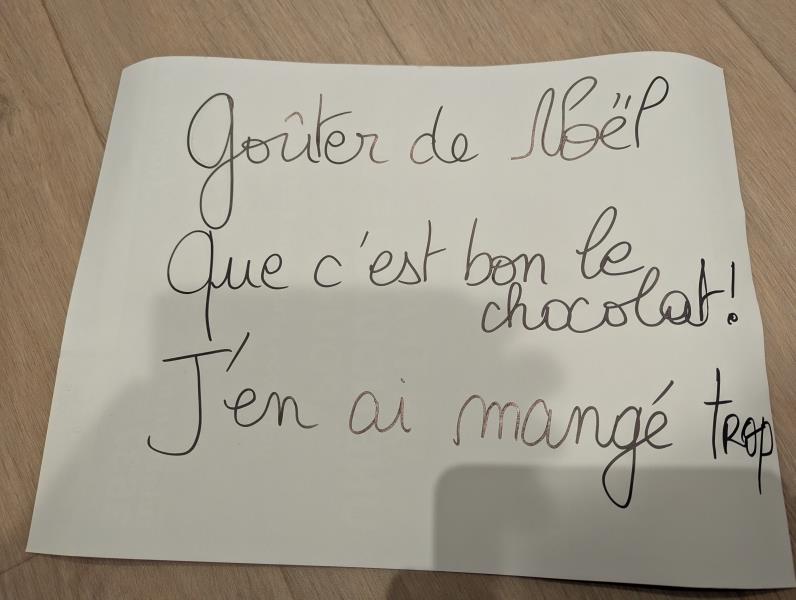 Goûter de Noël
Que c'est bon le
chocolat!
J'en ai mangé trop